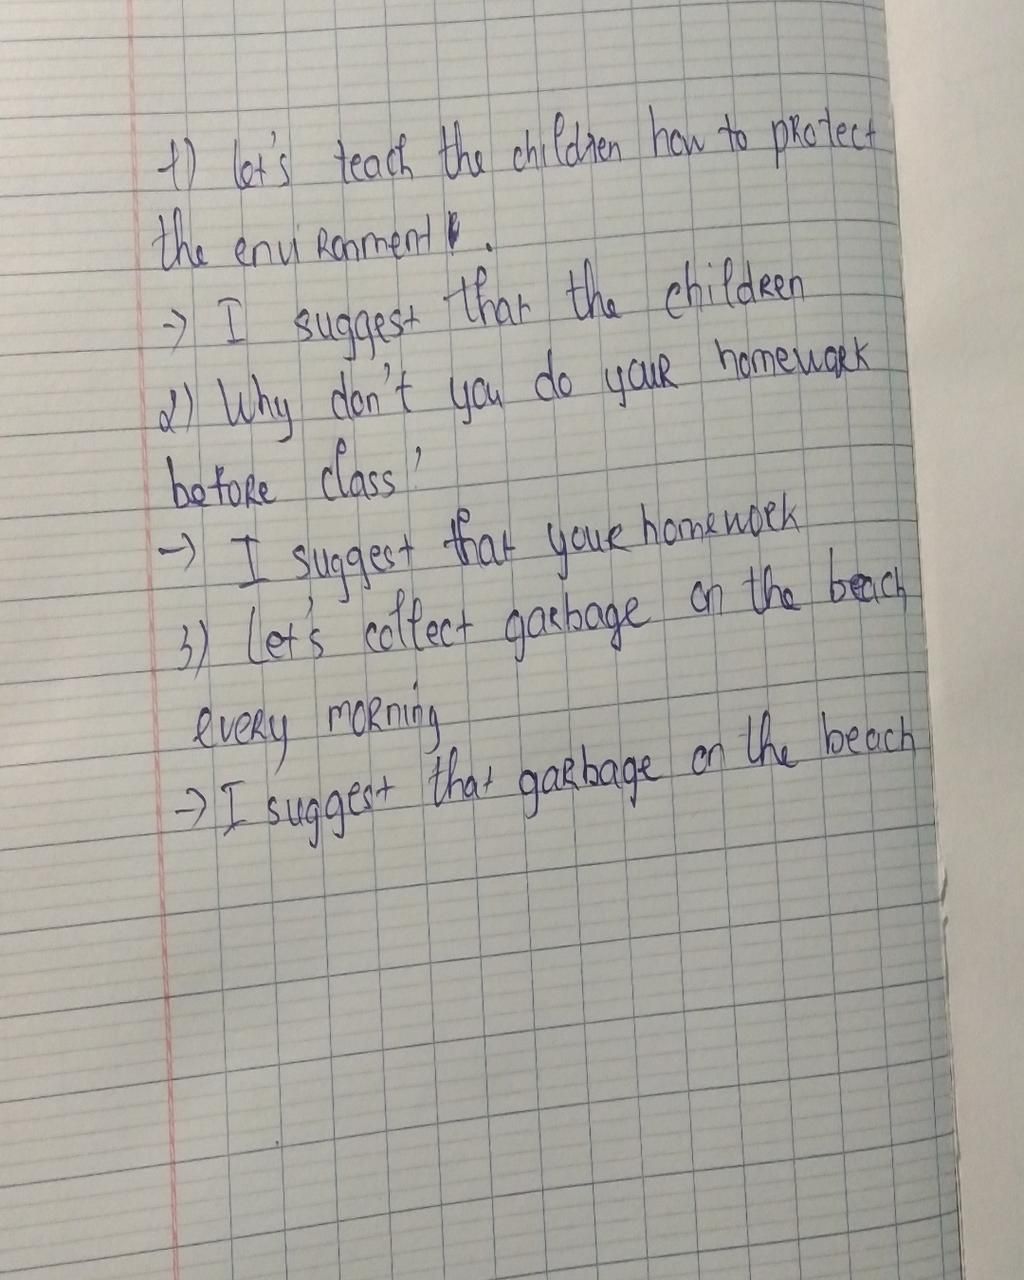 1) let's teach the children how to protect
the environment.
→ I suggest that the children
2) Why don't you do your homework
before class?
→ I suggest that your homework
3) Let's collect garbage on the beach
every morning
→ I suggest that garbage on the beach